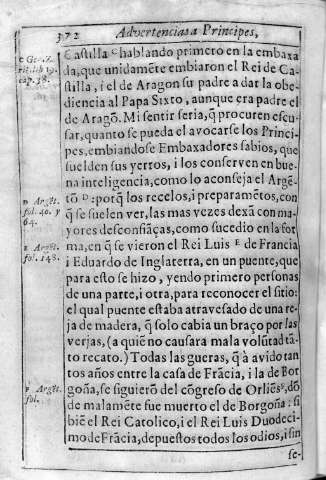 372 Advertencias a Principes,
Castilla C hablando primero en la embaxa
da, que unidamēte embiaron el Rei de Ca-
stilla, i el de Aragon su padre a dar la obe-
diencia al Papa Sixto, aunque era padre el
de Aragō. Mi sentir seria, q̃ procuren escu-
sar, quanto se pueda el avocarse los Princi-
pes, embiandose Embaxadores sabios, que
suelden sus yertos, i los conserven en bue-
na inteligencia, como lo aconseja el Argē-
tō D : porq̃ los recelos, i preparamētos, con
q̃ se suelen ver, las mas vezes dexā con ma-
yores desconfiāças, como sucedio en la for
ma, en q̃ se vieron el Rei Luis E de Francia
i Eduardo de Inglaterra, en un puente, que
para esto se hizo, yendo primero personas
de una parte, i otra, para reconocer el sitio:
el qual puente estaba atravesado de una re
ja de madera, q̃ solo cabia un braço por las
verjas, (a quiē no causara mala volūtad tā-
to recato.) Todas las gueras, q̃ à avido tan
tos años entre la casa de Frācia, i la de Bor
goña, se siguierō del cōgreso de Orliēs, dō
de malamēte fue muerto el de Borgoña: si
biē el Rei Catolico, i el Rei Luis Duodeci-
mo de Frācia, depuestos todos los odios, i sin
se-
C
rit. lib 19.
cap. 38.
D Argēt.
fol. 40. y
64.
E Argēt.
fol. 148.
F Argēt.
fol.